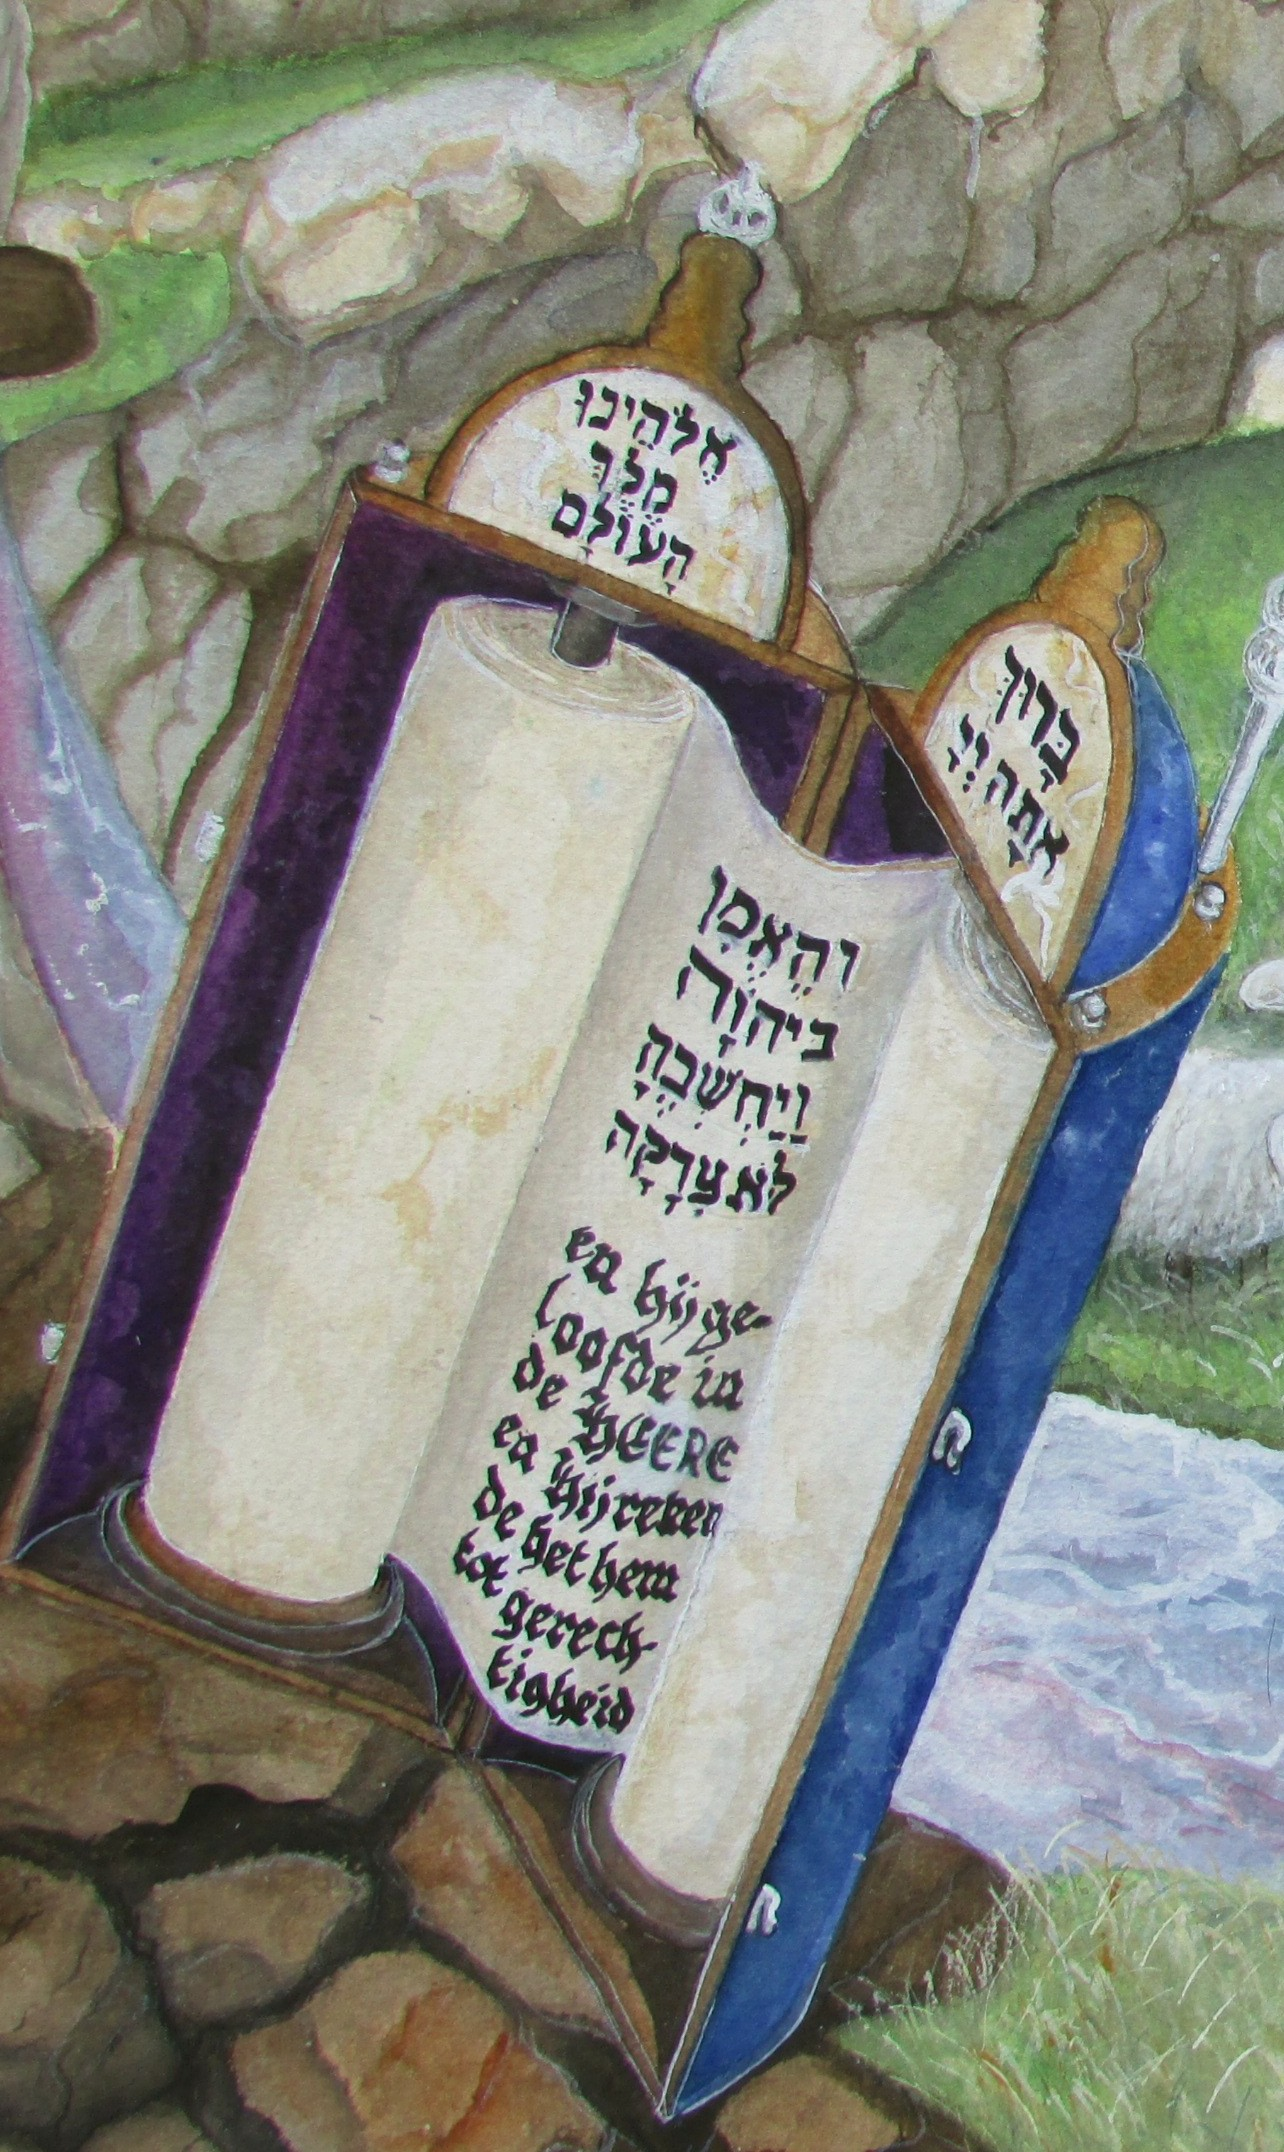 בָּרוּךְ
אַתָּה יְיָ
אֱלֹהֵינוּ
מֶלֶךְ
הָעוֹלָם
והֶאֱמִן
ביהוָה
וַיַחְשְׁבֶהָ
לֹא צְדָקָה
en hij ge-
loofde in
de HEERE
en hij reken
de het hem
tot gerech-
tigheid